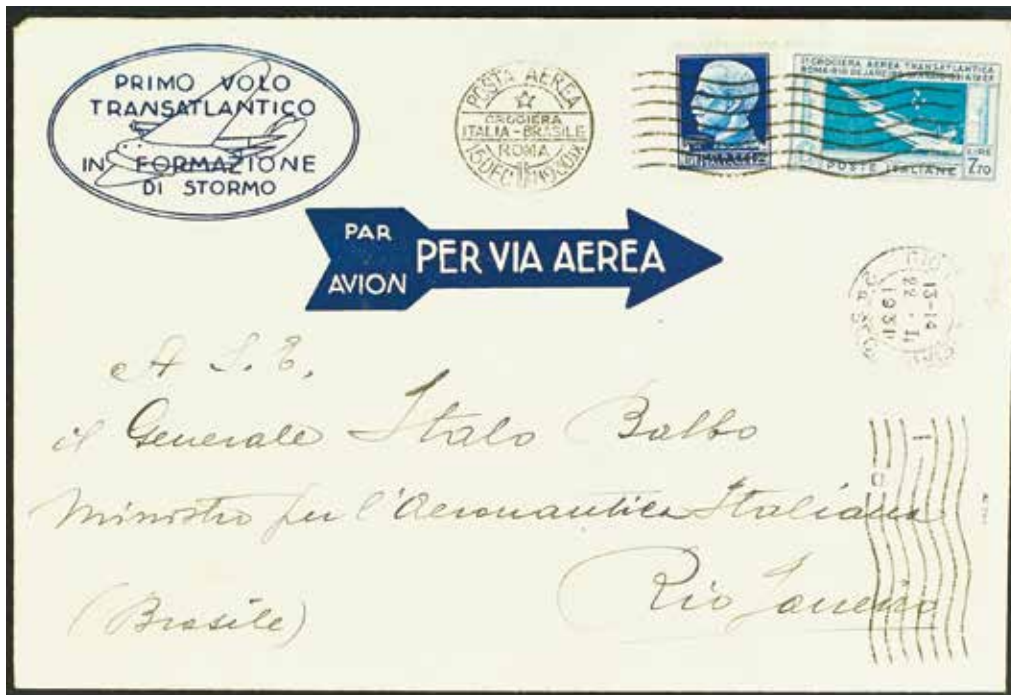 PRIMO VOLO
TRANSATLANTICO
IN FORMAZIONE
DI STORMO
POSTA AEREA
CROCIERA
ITALIA-BRASILE
ROMA
15 DEC
1ª CROCIERA AEREA TRANSATLANTICA
ROMA-RIO DE JANEIRO
POSTE ITALIANE
LIRE
7.70
PAR
AVION
PER VIA AEREA
13-14
22.II
1931
A S. E.
il Generale Italo Balbo
Ministro per l'Aeronautica Italiana
Rio Janeiro
(Brasile)